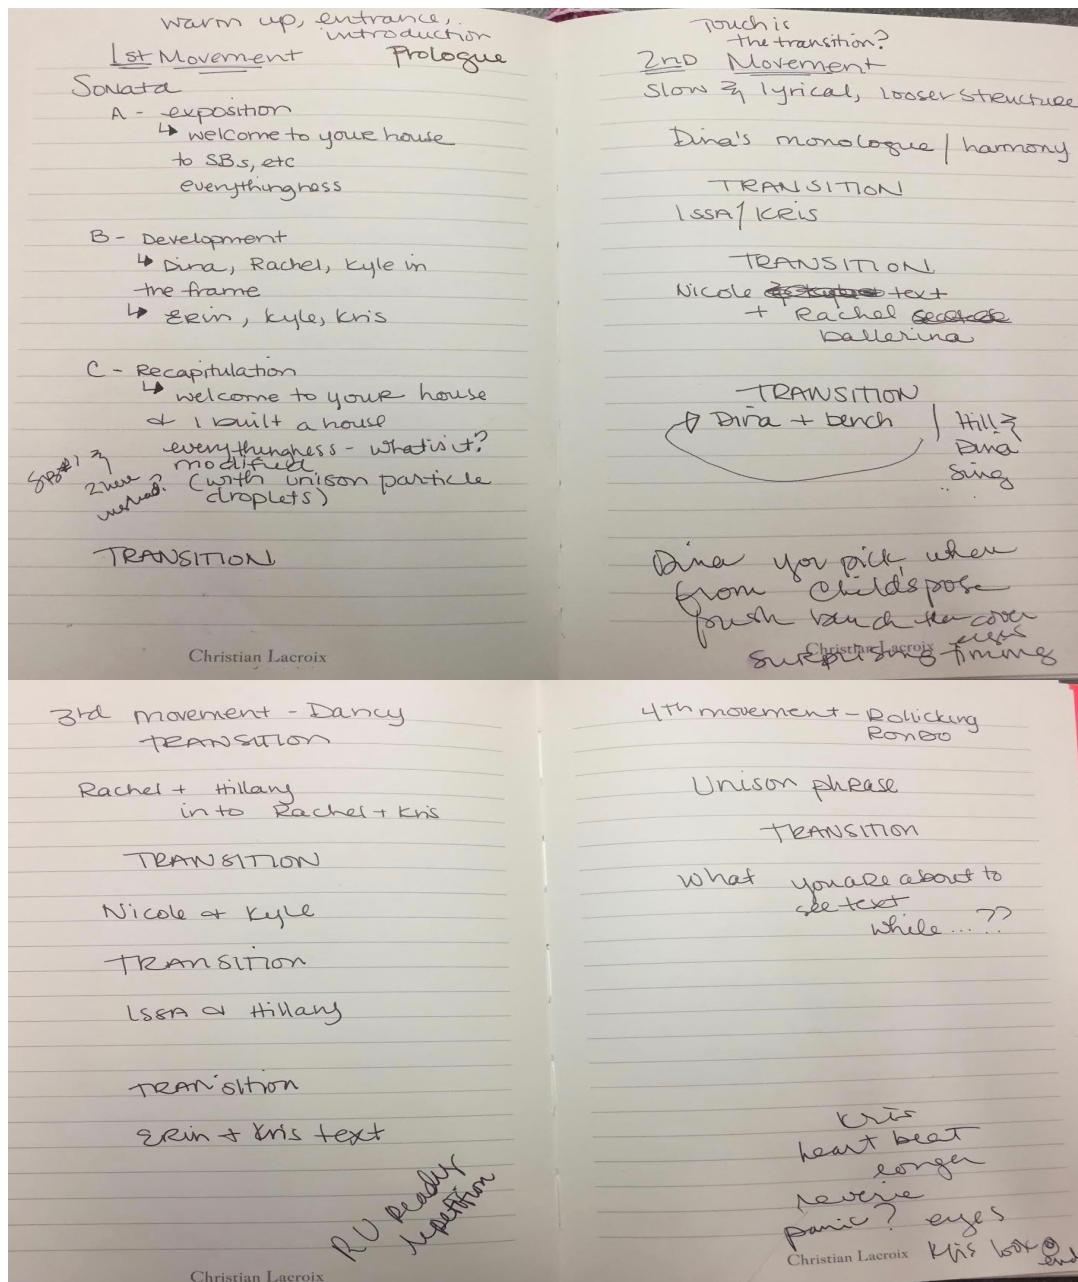 warm up, entrance,
introduction
1st Movement Prologue
Sonata
A - exposition
↳ welcome to your house
to SBs, etc
everythingness
B - Development
↳ Dina, Rachel, Kyle in
the frame
↳ Erin, Kyle, Kris
C - Recapitulation
↳ welcome to your house
& I built a house
everythingness - what is it?
modified
(with unison particle
droplets)
SB#1 &
2 here
instead?
TRANSITION
Christian Lacroix
Touch is
the transition?
2ND Movement
Slow & lyrical, looser structure
Dina's monologue / harmony
TRANSITION
ISSA / KRIS
TRANSITION
Nicole text
+ Rachel
ballerina
TRANSITION
Dina + bench
Hill &
Dina
sing
Dina you pick when
from Childspose
push bench then cover
eyes
surprising timing
Christian Lacroix
3rd movement - Dancy
TRANSITION
Rachel + Hillary
into Rachel + Kris
TRANSITION
Nicole & Kyle
TRANSITION
ISSA & Hillary
TRANSITION
Erin + Kris text
R U Ready
repetition
Christian Lacroix
4th movement - Rollicking
RONDO
Unison phrase
TRANSITION
What you are about to
see text
while...??
Kris
heart beat
longer
reverie
panic? eyes
Kris look @
end
Christian Lacroix